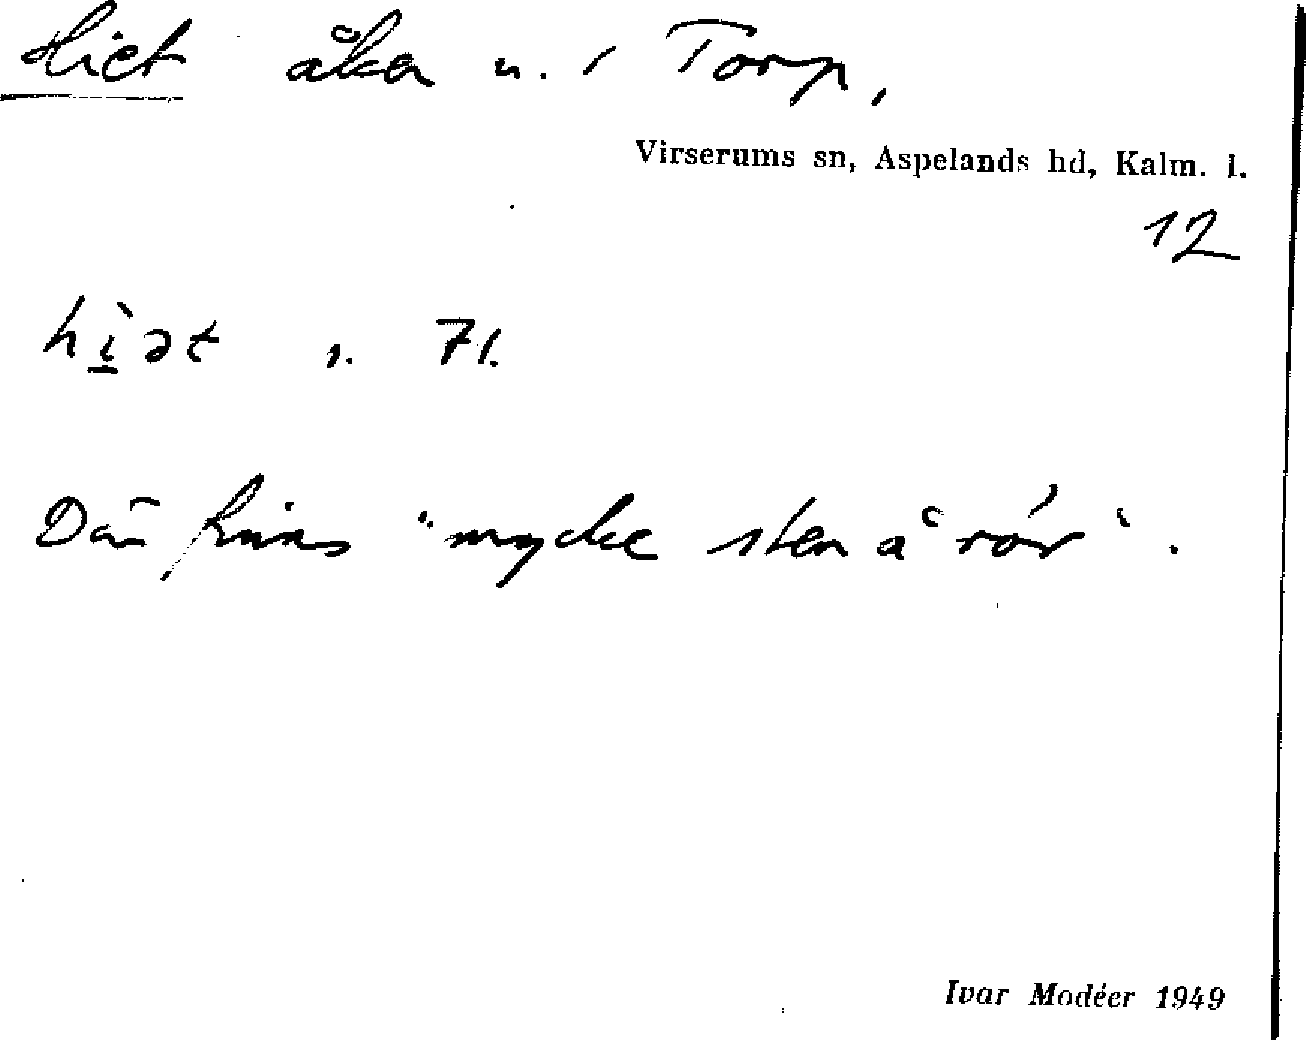 Hiet åker n. i Torp,
Virserums sn, Aspelands hd, Kalm. l.
12
hı̱̀ət s. 71.
Där finns "mycke sten å rör".
Ivar Modéer 1949